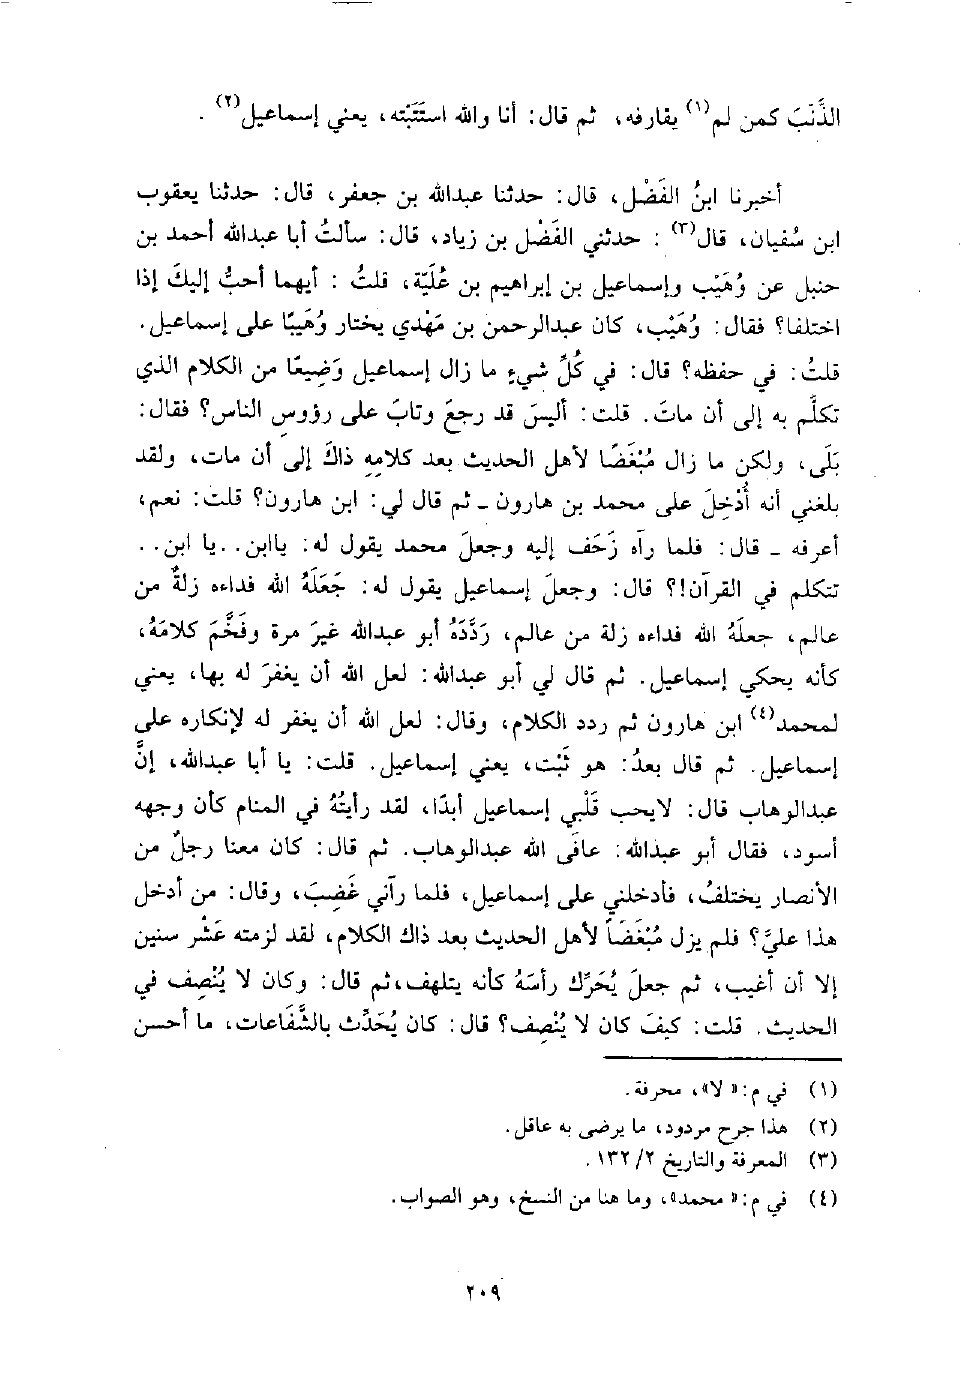 الذَّنْبَ كمن لم(١) يقارفه، ثم قال: أنا والله استَتَبْته، يعني إسماعيل(٢).
أخبرنا ابنُ الفَضْل، قال: حدثنا عبدالله بن جعفر، قال: حدثنا يعقوب
ابن سُفيان، قال(٣): حدثني الفَضْل بن زياد، قال: سألتُ أبا عبدالله أحمد بن
حنبل عن وُهَيْب وإسماعيل بن إبراهيم بن عُلَيّة، قلتُ: أيهما أحبُّ إليكَ إذا
اختلفا؟ فقال: وُهَيْب، كان عبدالرحمن بن مَهْدي يختار وُهَيبًا على إسماعيل.
قلتُ: في حفظه؟ قال: في كُلِّ شيءٍ ما زال إسماعيل وَضِيعًا من الكلام الذي
تكلَّم به إلى أن ماتَ. قلت: أليسَ قد رجعَ وتابَ على رؤوسِ الناس؟ فقال:
بَلَى، ولكن ما زال مُبْغَضًا لأهل الحديث بعد كلامِهِ ذاكَ إلى أن مات، ولقد
بلغني أنه أُدْخِلَ على محمد بن هارون ـ ثم قال لي: ابن هارون؟ قلت: نعم،
أعرفه ـ قال: فلما رآه زَحَف إليه وجعلَ محمد يقول له: ياابن.. يا ابن..
تتكلم في القرآن!؟ قال: وجعلَ إسماعيل يقول له: جَعَلَهُ الله فداءه زلةٌ من
عالم، جعلَهُ الله فداءه زلة من عالم، رَدَّدَهُ أبو عبدالله غيرَ مرة وفَخَّمَ كلامَهُ،
كأنه يحكي إسماعيل. ثم قال لي أبو عبدالله: لعل الله أن يغفرَ له بها، يعني
لمحمد(٤) ابن هارون ثم ردد الكلام، وقال: لعل الله أن يغفر له لإنكاره على
إسماعيل. ثم قال بعدُ: هو ثَبْت، يعني إسماعيل. قلت: يا أبا عبدالله، إنَّ
عبدالوهاب قال: لايحب قَلْبي إسماعيل أبدًا، لقد رأيتُهُ في المنام كأن وجهه
أسود، فقال أبو عبدالله: عافَى الله عبدالوهاب. ثم قال: كان معنا رجلٌ من
الأنصار يختلفُ، فأدخلني على إسماعيل، فلما رآني غَضِبَ، وقال: من أدخل
هذا عليَّ؟ فلم يزل مُبْغَضًا لأهل الحديث بعد ذاك الكلام، لقد لزمته عَشْر سنين
إلا أن أغيب، ثم جعلَ يُحَرِّك رأسَهُ كأنه يتلهف، ثم قال: وكان لا يُنْصِف في
الحديث. قلت: كيفَ كان لا يُنْصِف؟ قال: كان يُحَدِّث بالشَّفَاعات، ما أحسن
(١) في م: «لا»، محرفة.
(٢) هذا جرح مردود، ما يرضى به عاقل.
(٣) المعرفة والتاريخ ٢/ ١٣٢.
(٤) في م: «محمد»، وما هنا من النسخ، وهو الصواب.
٢٠٩